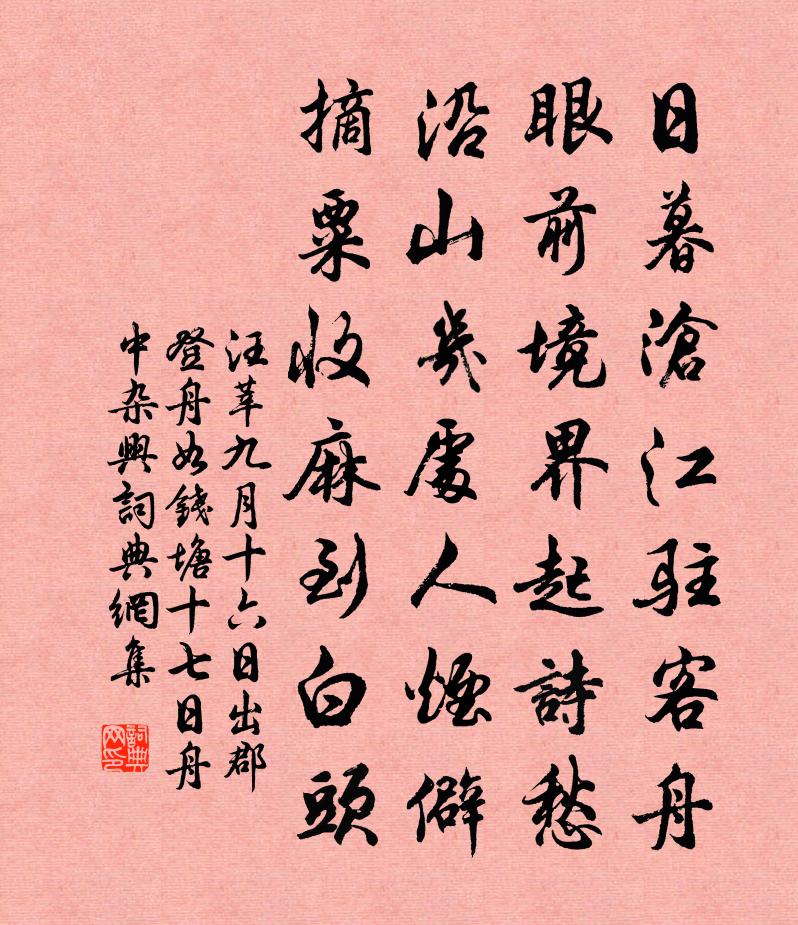 日暮滄江駐客舟
眼前境界起詩愁
沿山幾處人煙僻
摘粟收麻到白頭
汪莘九月十六日出郡
登舟如錢塘十七日舟
中杂興詞典網集
詞典
网印